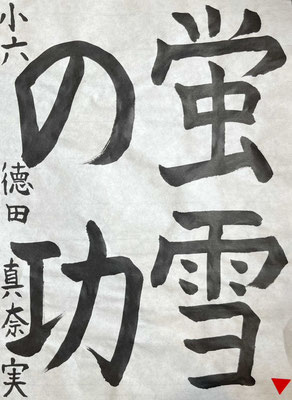 蛍雪
の功
小六 徳田 真奈実